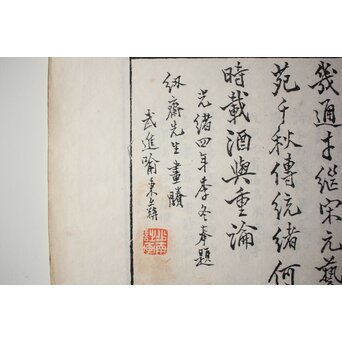 幾通才繼宋元藝
苑千秋傳統緒何
時載酒與重論
光緒四年季冬奉題
紉齋先生畫賸
武進喻秉